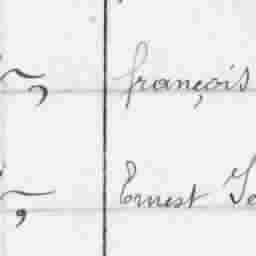 françois
Ernest